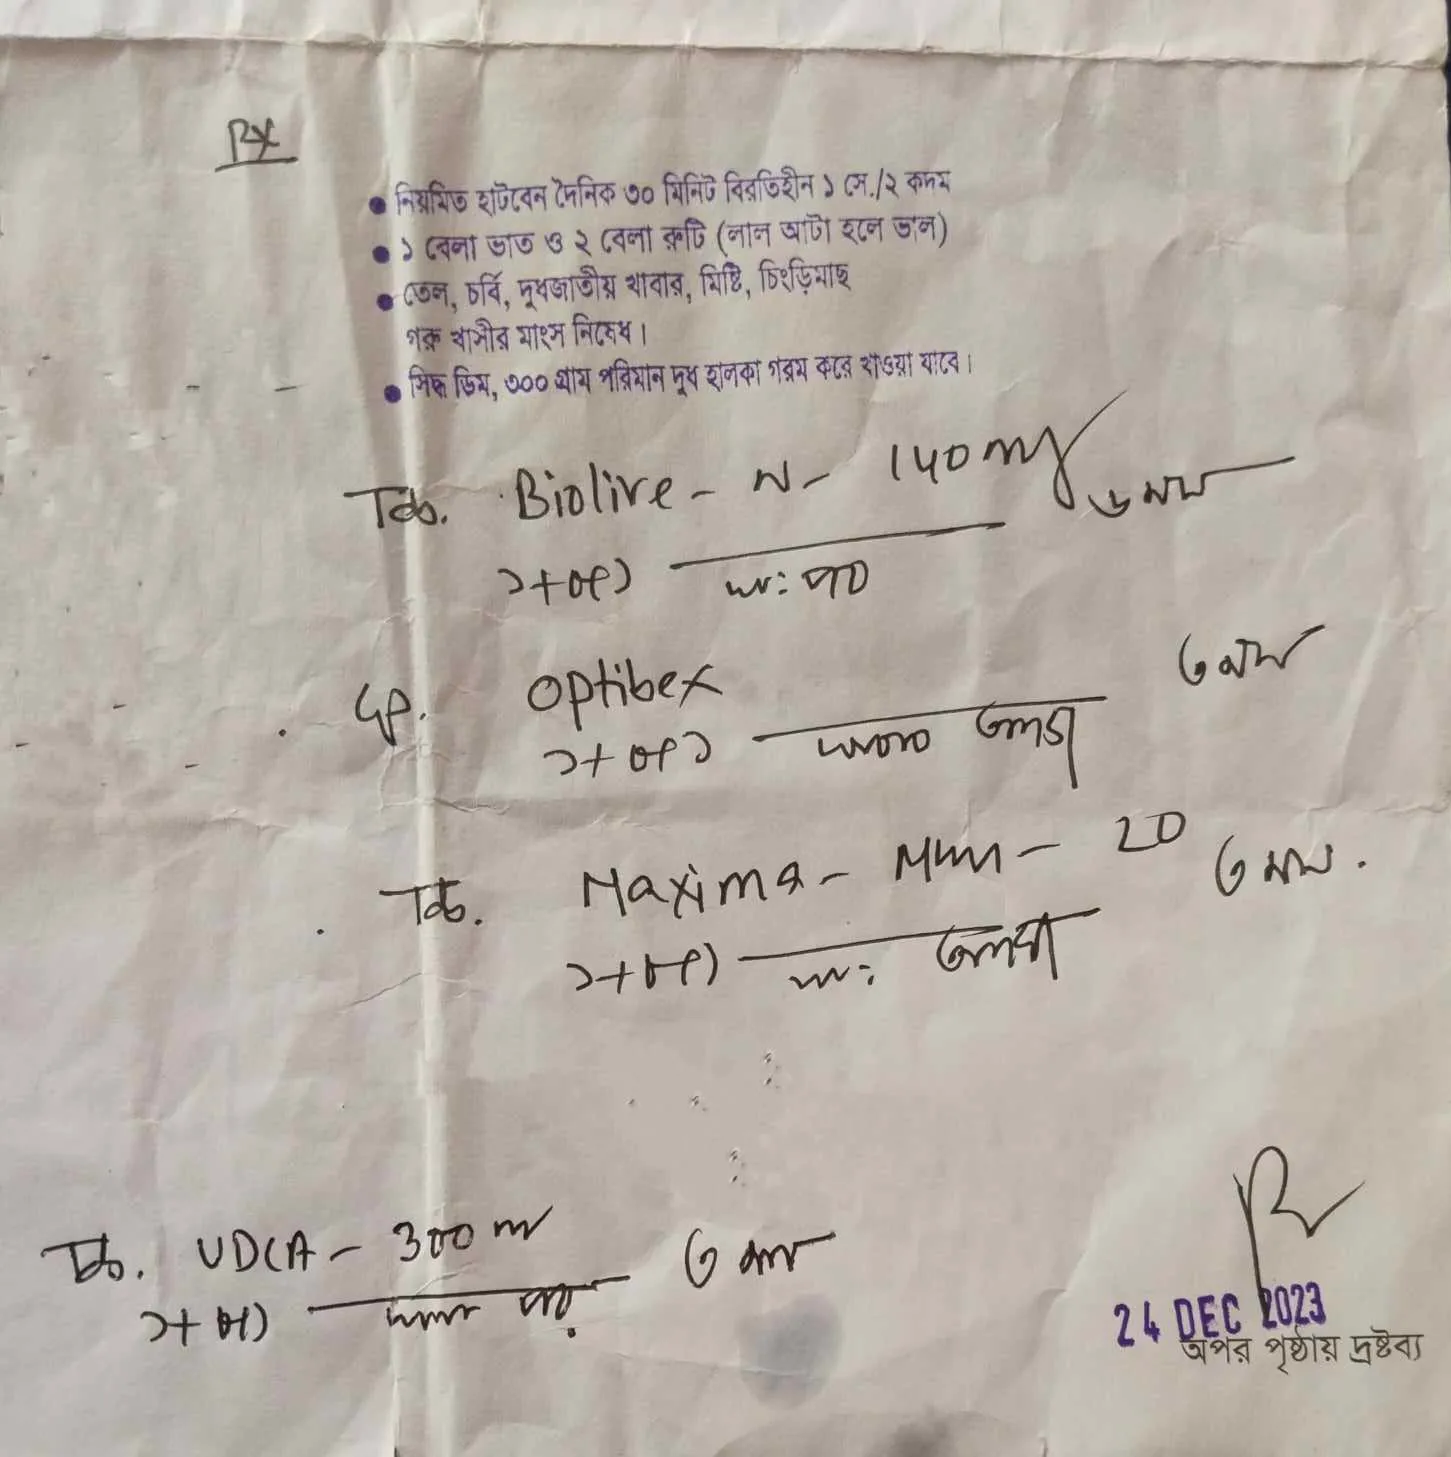 Rx
• নিয়মিত হাটবেন দৈনিক ৩০ মিনিট বিরতিহীন ১ সে./২ কদম
• ১ বেলা ভাত ও ২ বেলা রুটি (লাল আটা হলে ভাল)
• তেল, চর্বি, দুধজাতীয় খাবার, মিষ্টি, চিংড়িমাছ
গরু খাসীর মাংস নিষেধ।
• সিদ্ধ ডিম, ৩০০ গ্রাম পরিমান দুধ হালকা গরম করে খাওয়া যাবে।
Tab. Biolive - N - 140 mg
১+০+১
Optibex ৩ মাস
১+০+১
Tab. Maxima - MUPS - 20 ৩ মাস.
১+০+১
Tab. UDCA - 300 m ৩ মাস
১+০+১
24 DEC 2023
অপর পৃষ্ঠায় দ্রষ্টব্য